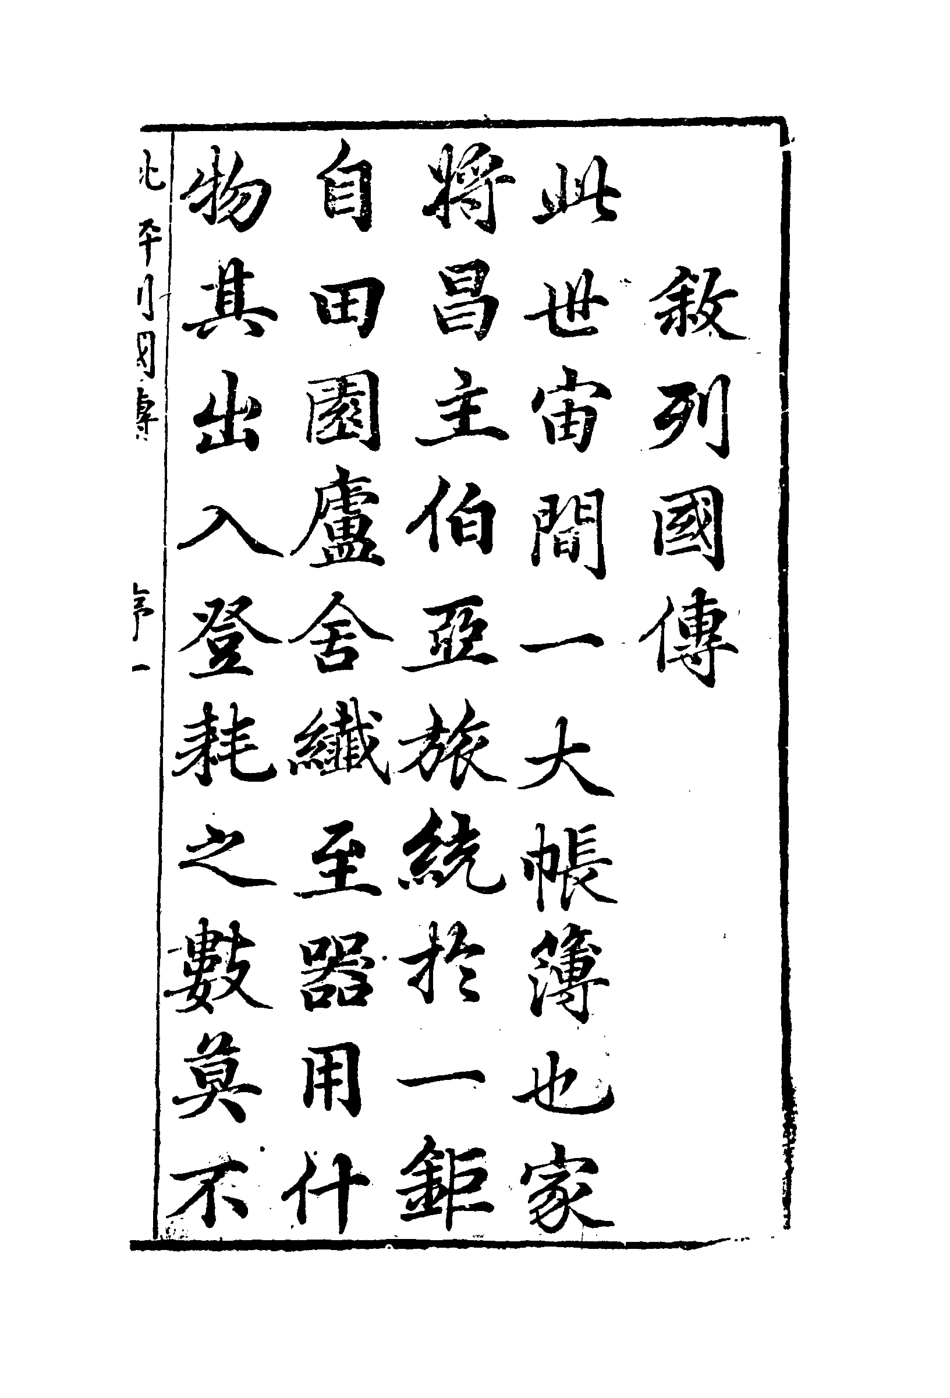 敘列國傳
此世宙間一大帳簿也家
將昌主伯亞旅統於一鉅
自田園廬舍纖至器用什
物其出入登耗之數莫不
列國傳
序一